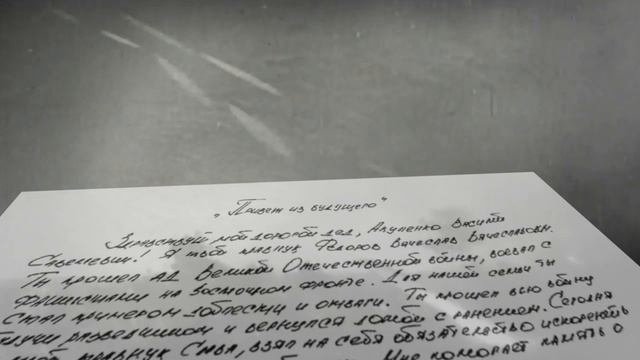 „Привет из будущего"
Здравствуй мой дорогой дед, Акуленко Василий
Савельевич! Я твой правнук Федоров Вячеслав Вячеславович.
Ты прошел ад Великой Отечественной войны, воевал с
фашистами на восточном фронте. Для нашей семьи ты
стал примером доблести и отваги. Ты прошел всю войну
будучи разведчиком и вернулся домой с ранением. Сегодня
твой правнук Слава, взял на себя обязательство искоренять
Мне помогает память о